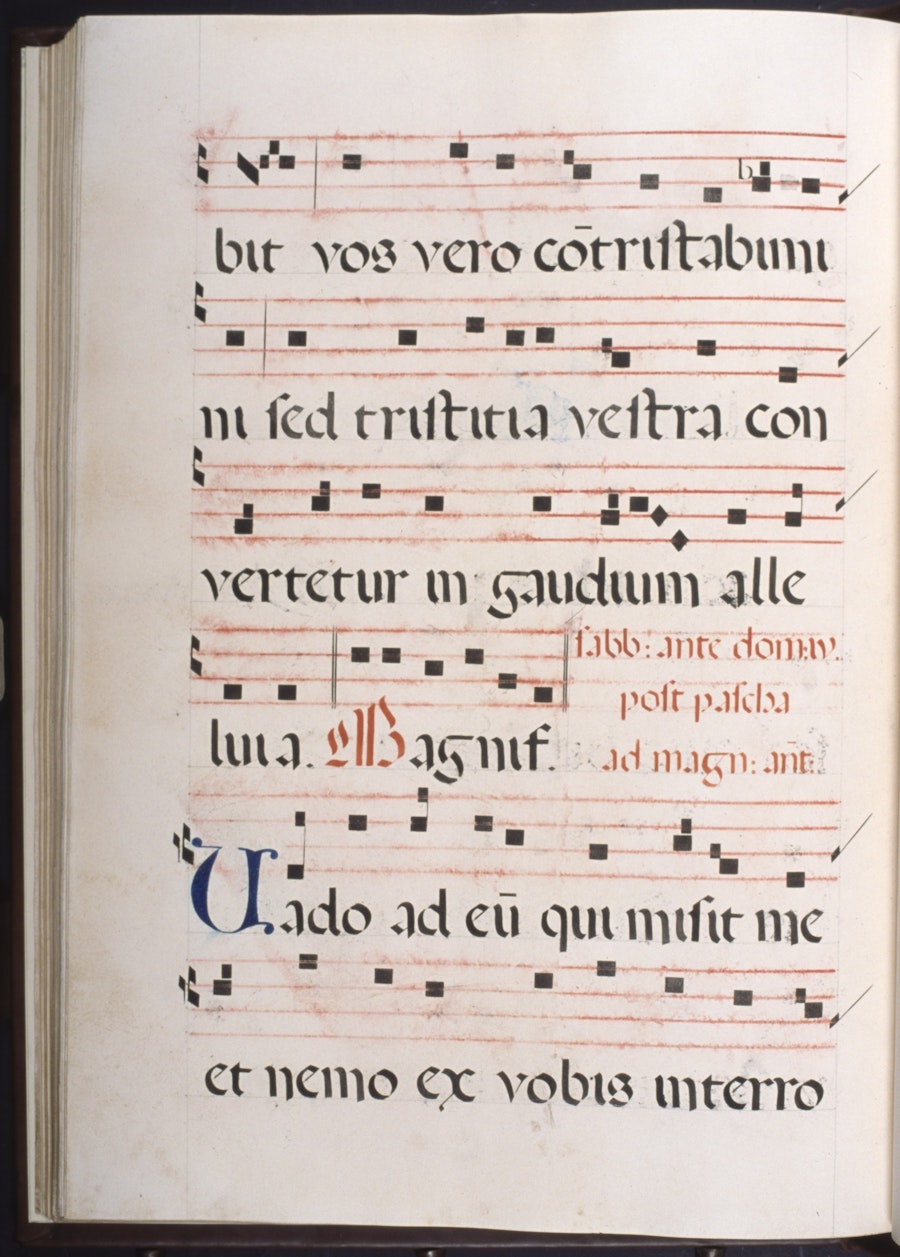 bit vos vero cōtristabimi
ni sed tristitia vestra con
vertetur in gaudium alle
luia. Magnif.
sabb: ante dom: iv.
post pascha
ad magn: añt:
Uado ad eū qui misit me
et nemo ex vobis interro